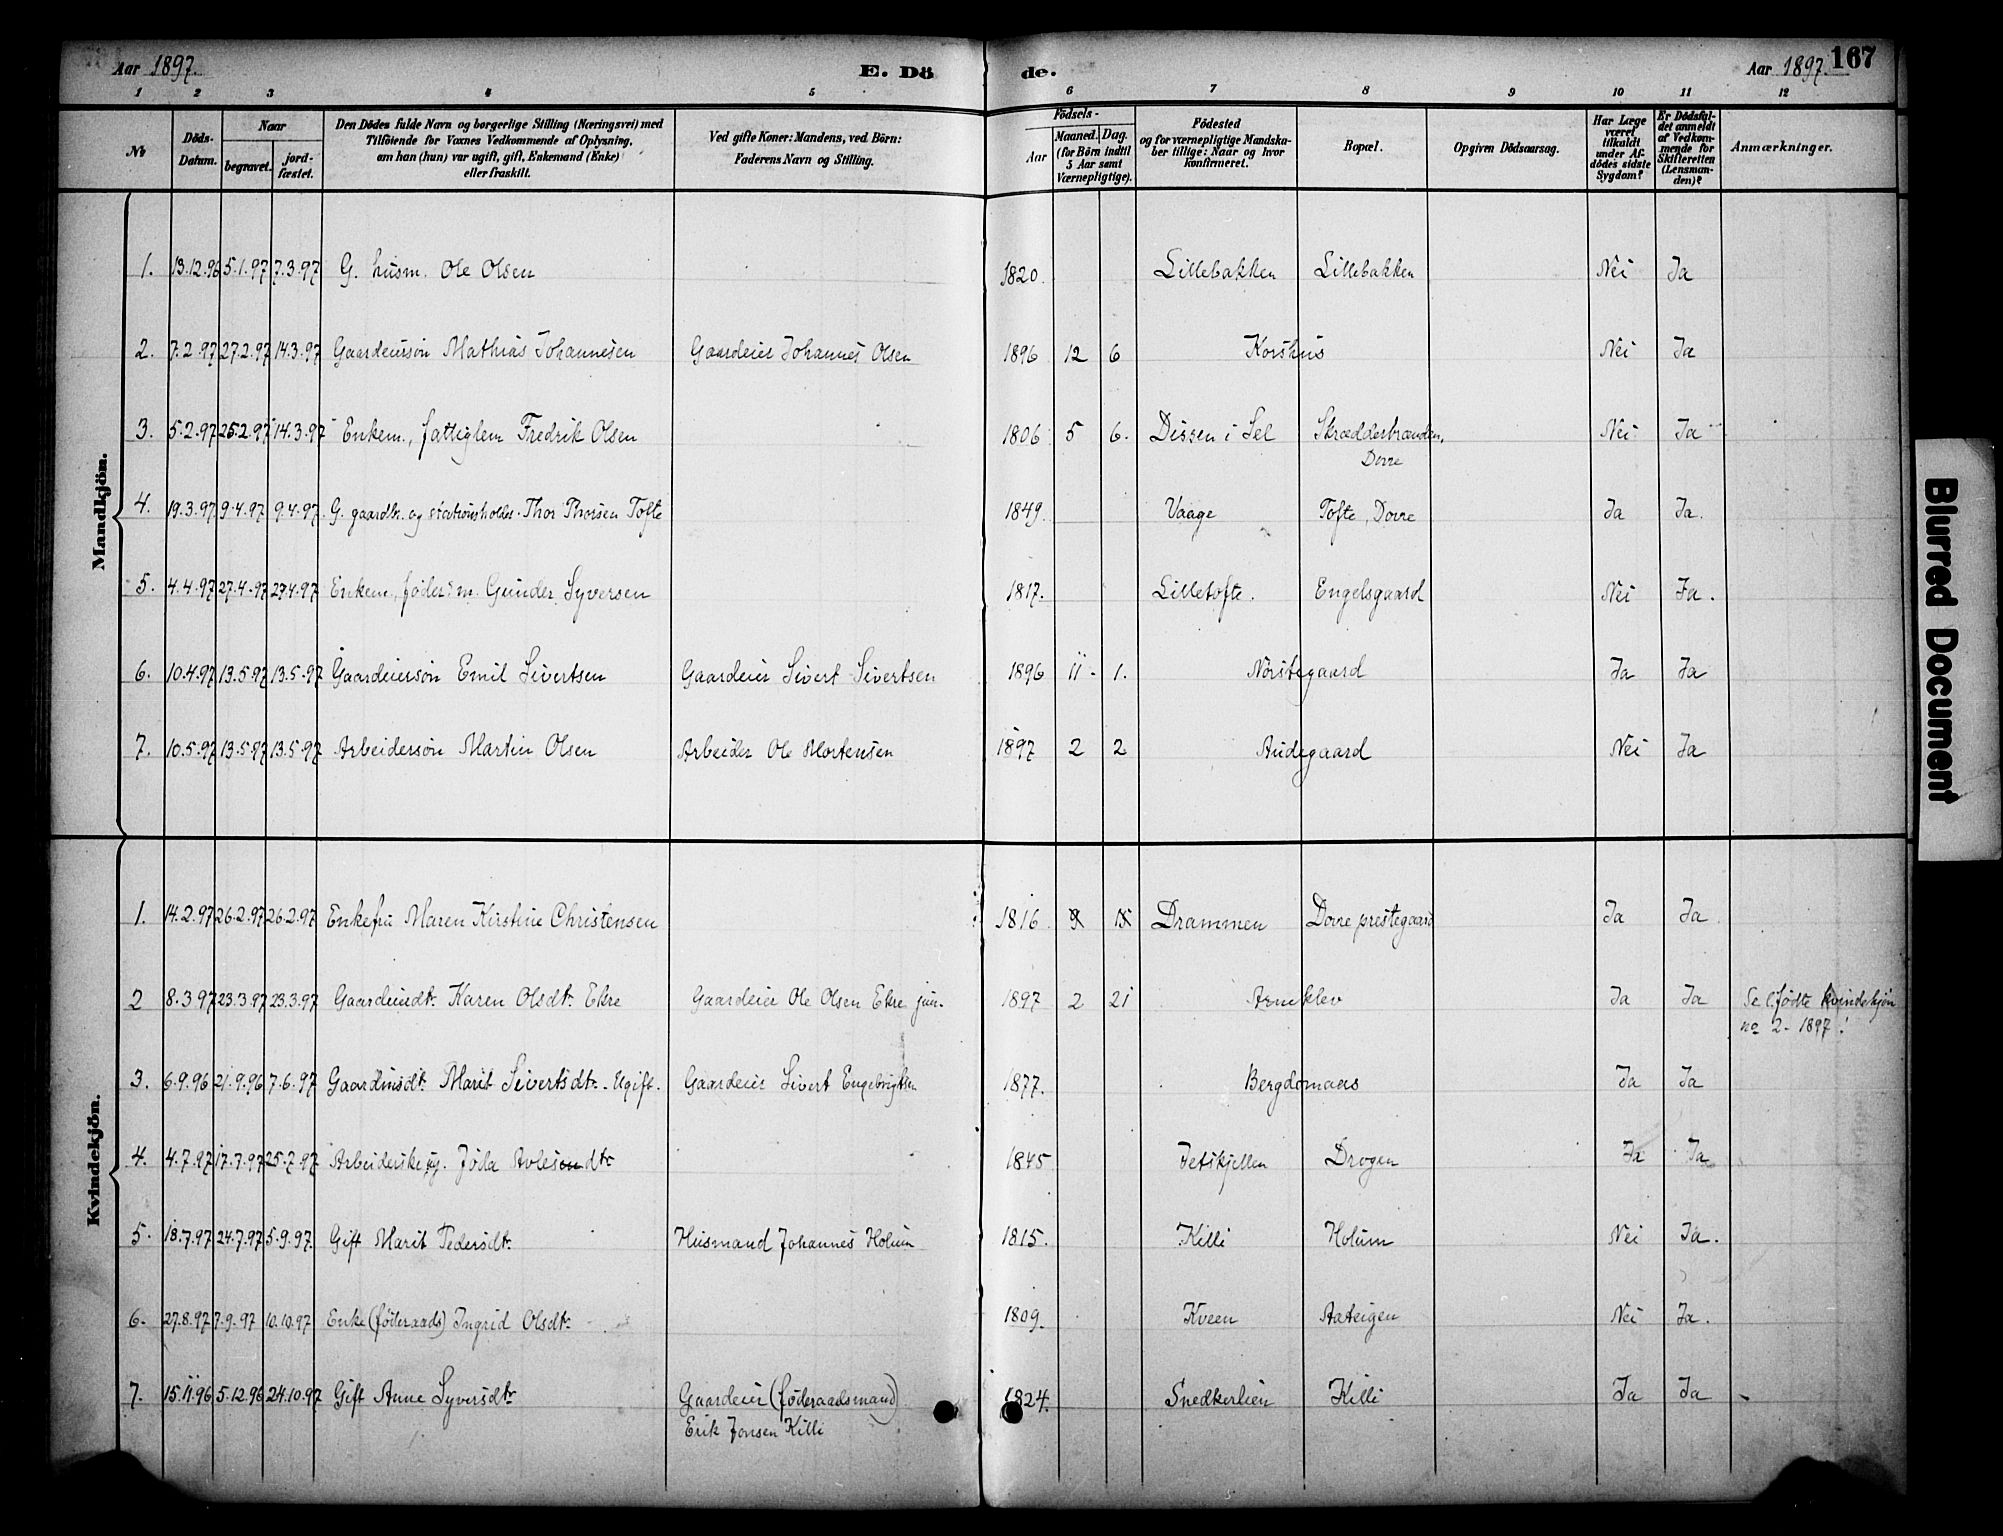 Aar 1897. E. Dö de. Aar 1897. 167
1 2 3 4 5 6 7 8 9 10 11 12
No
Döds-Datum.
Naar
begravet.
jord-fæstet.
Den Dödes fulde Navn og borgerlige Stilling (Næringsvei) med
Tilföiende for Voxnes Vedkommende af Oplysning,
om han (hun) var ugift, gift, Enkemand (Enke)
eller fraskilt.
Ved gifte Koner: Mandens, ved Börn:
Faderens Navn og Stilling.
Födsels-
Aar
Maaned. Dag.
(for Börn indtil
5 Aar samt
Værnepligtige).
Födested
og for værnepligtige Mandska-
ber tillige: Naar og hvor
konfirmeret.
Bopæl.
Opgiven Dödsaarsag.
Har Læge
været
tilkaldt
under Af-
dödes sidste
Sygdom?
Er Dödsfal-
det anmeldt
af Vedkom-
mende for
Skifteretten
(Lensman-
den)?
Anmærkninger.
Mandkjön.
1. 13.12.96 5.1.97 7.3.97 G. husm. Ole Olsen 1820. Lillebakken Lillebakken Nei Ja
2. 7.2.97 27.2.97 14.3.97 Gaardeiersön Mathias Johannesen Gaardeier Johannes Olsen 1896 12 6 Korshus Nei Ja
3. 5.2.97 25.2.97 14.3.97 Enkem., fattiglem Fredrik Olsen 1806 5 6. Dissen i Sel Skrædderbrænden, Nei Ja
Dovre
4. 19.3.97 9.4.97 9.4.97 G. gaardbr. og stationsholder Thor Thorsen Tofte 1849. Vaage Tofte, Dovre Ja Ja.
5. 4.4.97 27.4.97 27.4.97 Enkem., føder:m. Gunder Syversen 1817. Lilletofte. Engelsgaard Nei Ja.
6. 10.4.97 13.5.97 13.5.97 Gaardeiersön Emil Sivertsen Gaardeier Sivert Sivertsen 1896 11 1. Norstegaard Ja Ja
7. 10.5.97 13.5.97 13.5.97 Arbeidersön Martin Olsen Arbeider Ole Mortensen 1897 2 2 Audegaard Nei Ja
Kvindekjön.
1. 14.2.97 26.2.97 26.2.97 Enkefru Maren Kirstine Christensen 1816 9 15 Drammen Dovre prestegaard Ja Ja
2 8.3.97 23.3.97 23.3.97 Gaardeierdt. Karen Olsdt. Ekre Gaardeier Ole Olsen Ekre jun. 1897 2 21 Arneklev Ja Ja Se: fødte kvindekjön
no 2 - 1897!
3. 6.9.96 21.9.96 7.6.97 Gaardeiersdt. Marit Sivertsdt. - Ugift. Gaardeier Sivert Engebrigtsen 1877. Bergdomaas Ja Ja
4. 4.7.97 17.7.97 25.7.97 Arbeiderske ug. Jøda Avlesendt. 1845 Jetskjellen Drogen Ja Ja
5. 18.7.97 24.7.97 5.9.97. Gift Marit Pedersdt. Husmand Johannes Holum 1815. Killi Holum Nei Ja.
6. 27.8.97 7.9.97 10.10.97 Enke (føderaads) Ingrid Olsdt. 1809. Kveen Aateigen Nei Ja.
7. 15.11.96 5.12.96 24.10.97 Gift Anne Syversdt. Gaardeier (føderaadsmand) 1824. Snedkerlien Killi Ja Ja -
Erik Jonsen Killi
Blurred Document